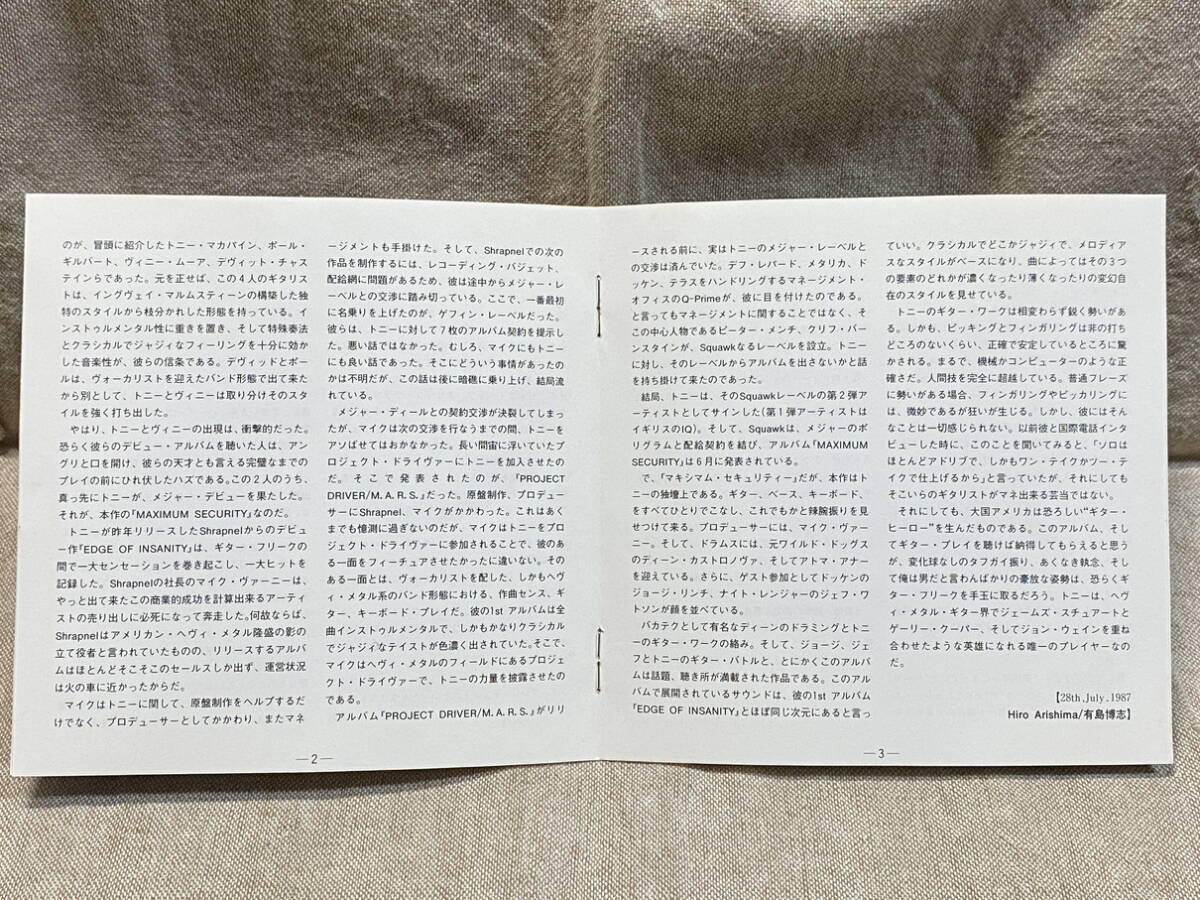 のが、冒頭に紹介したトニー・マカパイン、ポール・
ギルバート、ヴィニー・ムーア、デヴィット・チャス
テインらであった。元を正せば、この４人のギタリス
トは、イングヴェイ・マルムスティーンの構築した独
特のスタイルから枝分かれした形態を持っている。イ
ンストゥルメンタル性に重きを置き、そして特殊奏法
とクラシカルでジャジィなフィーリングを十分に効か
した音楽性が、彼らの信条である。デヴィッドとポー
ルは、ヴォーカリストを迎えたバンド形態で出て来た
から別として、トニーとヴィニーは取り分けそのスタ
イルを強く打ち出した。
やはり、トニーとヴィニーの出現は、衝撃的だった。
恐らく彼らのデビュー・アルバムを聴いた人は、アン
グリと口を開け、彼らの天才とも言える完璧なまでの
プレイの前にひれ伏したハズである。この２人のうち、
真っ先にトニーが、メジャー・デビューを果たした。
それが、本作の「MAXIMUM SECURITY」なのだ。
トニーが昨年リリースしたShrapnelからのデビュ
ー作「EDGE OF INSANITY」は、ギター・フリークの
間で一大センセーションを巻き起こし、一大ヒットを
記録した。Shrapnelの社長のマイク・ヴァーニーは、
やっと出て来たこの商業的成功を計算出来るアーティ
ストの売り出しに必死になって奔走した。何故ならば、
Shrapnelはアメリカン・ヘヴィ・メタル隆盛の影の
立て役者と言われていたものの、リリースするアルバ
ムはほとんどそこそこのセールスしか出ず、運営状況
は火の車に近かったからだ。
マイクはトニーに関して、原盤制作をヘルプするだ
けでなく、プロデューサーとしてかかわり、またマネ
—2—
ージメントも手掛けた。そして、Shrapnelでの次の
作品を制作するには、レコーディング・バジェット、
配給網に問題があるため、彼は途中からメジャー・レ
ーベルとの交渉に踏み切っている。ここで、一番最初
に名乗りを上げたのが、ゲフィン・レーベルだった。
彼らは、トニーに対して７枚のアルバム契約を提示し
た。悪い話ではなかった。むしろ、マイクにもトニー
にも良い話であった。そこにどういう事情があったの
かは不明だが、この話は後に暗礁に乗り上げ、結局流
れている。
メジャー・ディールとの契約交渉が決裂してしまっ
たが、マイクは次の交渉を行なうまでの間、トニーを
アソばせてはおかなかった。長い間宙に浮いていたプ
ロジェクト・ドライヴァーにトニーを加入させたの
だ。そこで発表されたのが、「PROJECT
DRIVER/M.A.R.S.」だった。原盤制作、プロデュー
サーにShrapnel、マイクがかかわった。これはあく
までも憶測に過ぎないのだが、マイクはトニーをプロ
ジェクト・ドライヴァーに参加されることで、彼のあ
る一面をフィーチュアさせたかったに違いない。その
ある一面とは、ヴォーカリストを配した、しかもヘヴ
ィ・メタル系のバンド形態における、作曲センス、ギ
ター、キーボード・プレイだ。彼の1st アルバムは全
曲インストゥルメンタルで、しかもかなりクラシカル
でジャジィなテイストが色濃く出されていた。そこで、
マイクはヘヴィ・メタルのフィールドにあるプロジェ
クト・ドライヴァーで、トニーの力量を披露させたの
である。
アルバム「PROJECT DRIVER/M.A.R.S.」がリリ
ースされる前に、実はトニーのメジャー・レーベルと
の交渉は済んでいた。デフ・レパード、メタリカ、ド
ッケン、テラスをハンドリングするマネージメント・
オフィスのQ-Primeが、彼に目を付けたのである。
と言ってもマネージメントに関することではなく、そ
この中心人物であるピーター・メンチ、クリフ・バー
ンスタインが、Squawkなるレーベルを設立。トニー
に対し、そのレーベルからアルバムを出さないかと話
を持ち掛けて来たのであった。
結局、トニーは、そのSquawkレーベルの第２弾ア
ーティストとしてサインした(第１弾アーティストは
イギリスのIQ)。そして、Squawkは、メジャーのポ
リグラムと配給契約を結び、アルバム「MAXIMUM
SECURITY」は６月に発表されている。
で、「マキシマム・セキュリティー」だが、本作はト
ニーの独壇上である。ギター、ベース、キーボード、
をすべてひとりでこなし、これでもかと辣腕振りを見
せつけて来る。プロデューサーには、マイク・ヴァー
ニー。そして、ドラムスには、元ワイルド・ドッグス
のディーン・カストロノヴァ、そしてアトマ・アナー
を迎えている。さらに、ゲスト参加としてドッケンの
ジョージ・リンチ、ナイト・レンジャーのジェフ・ワ
トソンが顔を並べている。
バカテクとして有名なディーンのドラミングとトニ
ーのギター・ワークの絡み。そして、ジョージ、ジェ
フとトニーのギター・バトルと、とにかくこのアルバ
ムは話題、聴き所が満載された作品である。このアル
バムで展開されているサウンドは、彼の1st アルバム
「EDGE OF INSANITY」とほぼ同じ次元にあると言っ
—3—
ていい。クラシカルでどこかジャジィで、メロディア
スなスタイルがベースになり、曲によってはその３つ
の要素のどれかが濃くなったり薄くなったりの変幻自
在のスタイルを見せている。
トニーのギター・ワークは相変わらず鋭く勢いがあ
る。しかも、ピッキングとフィンガリングは非の打ち
どころのないくらい、正確で安定しているところに驚
かされる。まるで、機械かコンピューターのような正
確さだ。人間技を完全に超越している。普通フレーズ
に勢いがある場合、フィンガリングやピッカリングに
は、微妙であるが狂いが生じる。しかし、彼にはそん
なことは一切感じられない。以前彼と国際電話インタ
ビューした時に、このことを聞いてみると、「ソロは
ほとんどアドリブで、しかもワン・テイクかツー・テ
イクで仕上げるから」と言っていたが、それにしても
そこいらのギタリストがマネ出来る芸当ではない。
それにしても、大国アメリカは恐ろしい“ギター・
ヒーロー”を生んだものである。このアルバム、そし
てギター・プレイを聴けば納得してもらえると思う
が、変化球なしのタフガイ振り、あくなき執念、そし
て俺は男だと言わんばかりの豪放な姿勢は、恐らくギ
ター・フリークを手玉に取るだろう。トニーは、ヘヴ
ィ・メタル・ギター界でジェームズ・スチュアートと
ゲーリー・クーパー、そしてジョン・ウェインを重ね
合わせたような英雄になれる唯一のプレイヤーなの
だ。
【28th, July, 1987
Hiro Arishima/有島博志】